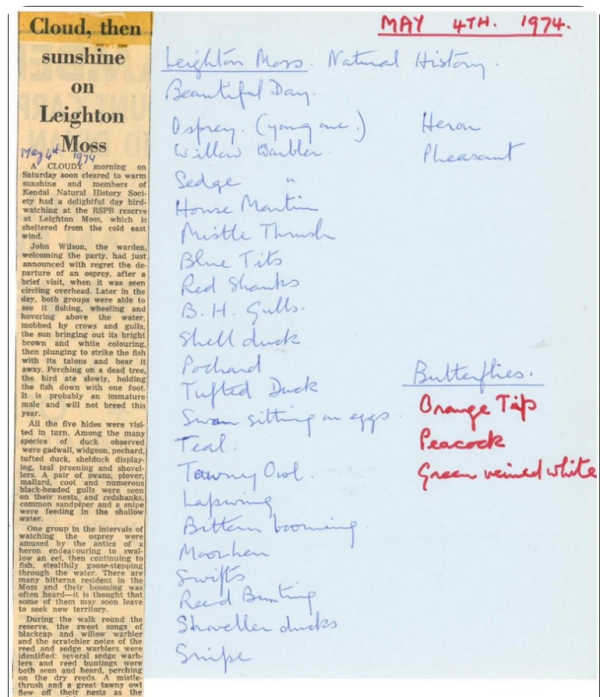 Cloud, then
sunshine
on
Leighton
Moss
May 4th 1974
A CLOUDY morning on
Saturday soon cleared to warm
sunshine and members of
Kendal Natural History Soci-
ety had a delightful day bird-
watching at the RSPB reserve
at Leighton Moss, which is
sheltered from the cold east
wind.
John Wilson, the warden,
welcoming the party, had just
announced with regret the de-
parture of an osprey, after a
brief visit, when it was seen
circling overhead. Later in the
day, both groups were able to
see it fishing, wheeling and
hovering above the water,
mobbed by crows and gulls,
the sun bringing out its bright
brown and white colouring,
then plunging to strike the fish
with its talons and bear it
away. Perching on a dead tree,
the bird ate slowly, holding
the fish down with one foot.
It is probably an immature
male and will not breed this
year.
All the five hides were visi-
ted in turn. Among the many
species of duck observed
were gadwall, widgeon, pochard,
tufted duck, shelduck display-
ing, teal preening and shovel-
lers. A pair of swans, plover,
mallard, coot and numerous
black-headed gulls were seen
on their nests, and redshanks,
common sandpiper and a snipe
were feeding in the shallow
water.
One group in the intervals of
watching the osprey were
amused by the antics of a
heron endeavouring to swal-
low an eel, then continuing to
fish, stealthily goose-stepping
through the water. There are
many bitterns resident in the
Moss and their booming was
often heard—it is thought that
some of them may soon leave
to seek new territory.
During the walk round the
reserve, the sweet songs of
blackcap and willow warbler
and the scratchier notes of the
reed and sedge warblers were
identified: several sedge warb-
lers and reed buntings were
both seen and heard, perching
on the dry reeds. A mistle-
thrush and a great tawny owl
flew off their nests as the
MAY 4TH. 1974.
Leighton Moss. Natural History.
Beautiful Day.
Osprey. (young one.)
Willow Warbler.
Sedge "
House Martin
Mistle Thrush
Blue Tits
Red Shanks
B. H. Gulls.
Shell duck
Pochard
Tufted Duck
Swan sitting on eggs.
Teal.
Tawny Owl.
Lapwing
Bittern booming.
Moorhen
Swifts
Reed Bunting
Shoveller ducks
Snipe
Heron
Pheasant
Butterflies.
Orange Tip
Peacock
Green veined white